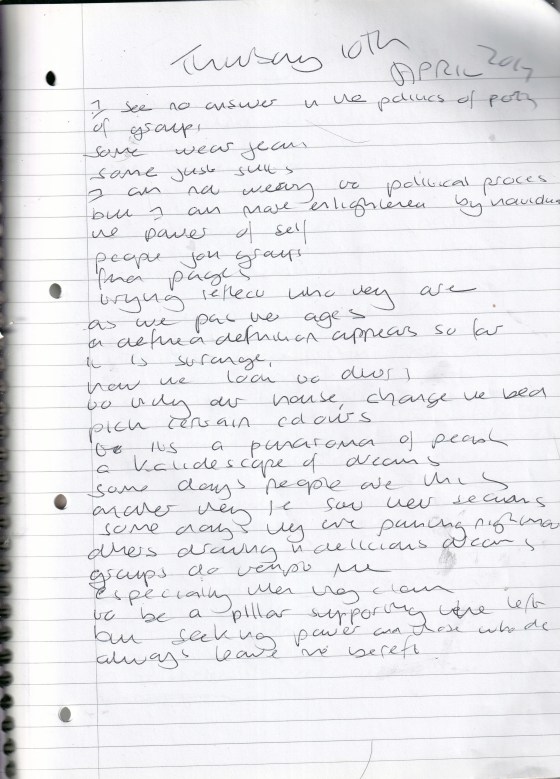 Thursday 10th
APRIL 2014
I see no answer in the politics of party
of groups
some wear jeans
some just suits
I am not weary the political proces
but I am more enlightened by
the power of self
people join groups
pages
trying reflect who they are
as we pas the ages
a defined definition appears so far
it is strange,
how we look to others
to tidy our house, change the bed
pick certain colours
its a panaroma of people
a kalidescope of dreams
some days people are this
another they
some days they are painting nightmares
others drawing delicious dreams
groups do tempt me
especially when they claim
to be a pillar supporting the left
but seeking power and those who do
always leave me bereft.